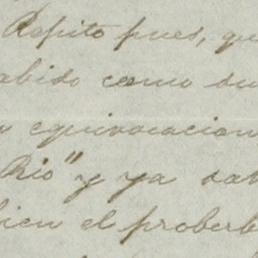 Repito pues, qu
abido como su
equivocacion
Rio" y ya sab
bien el proberb